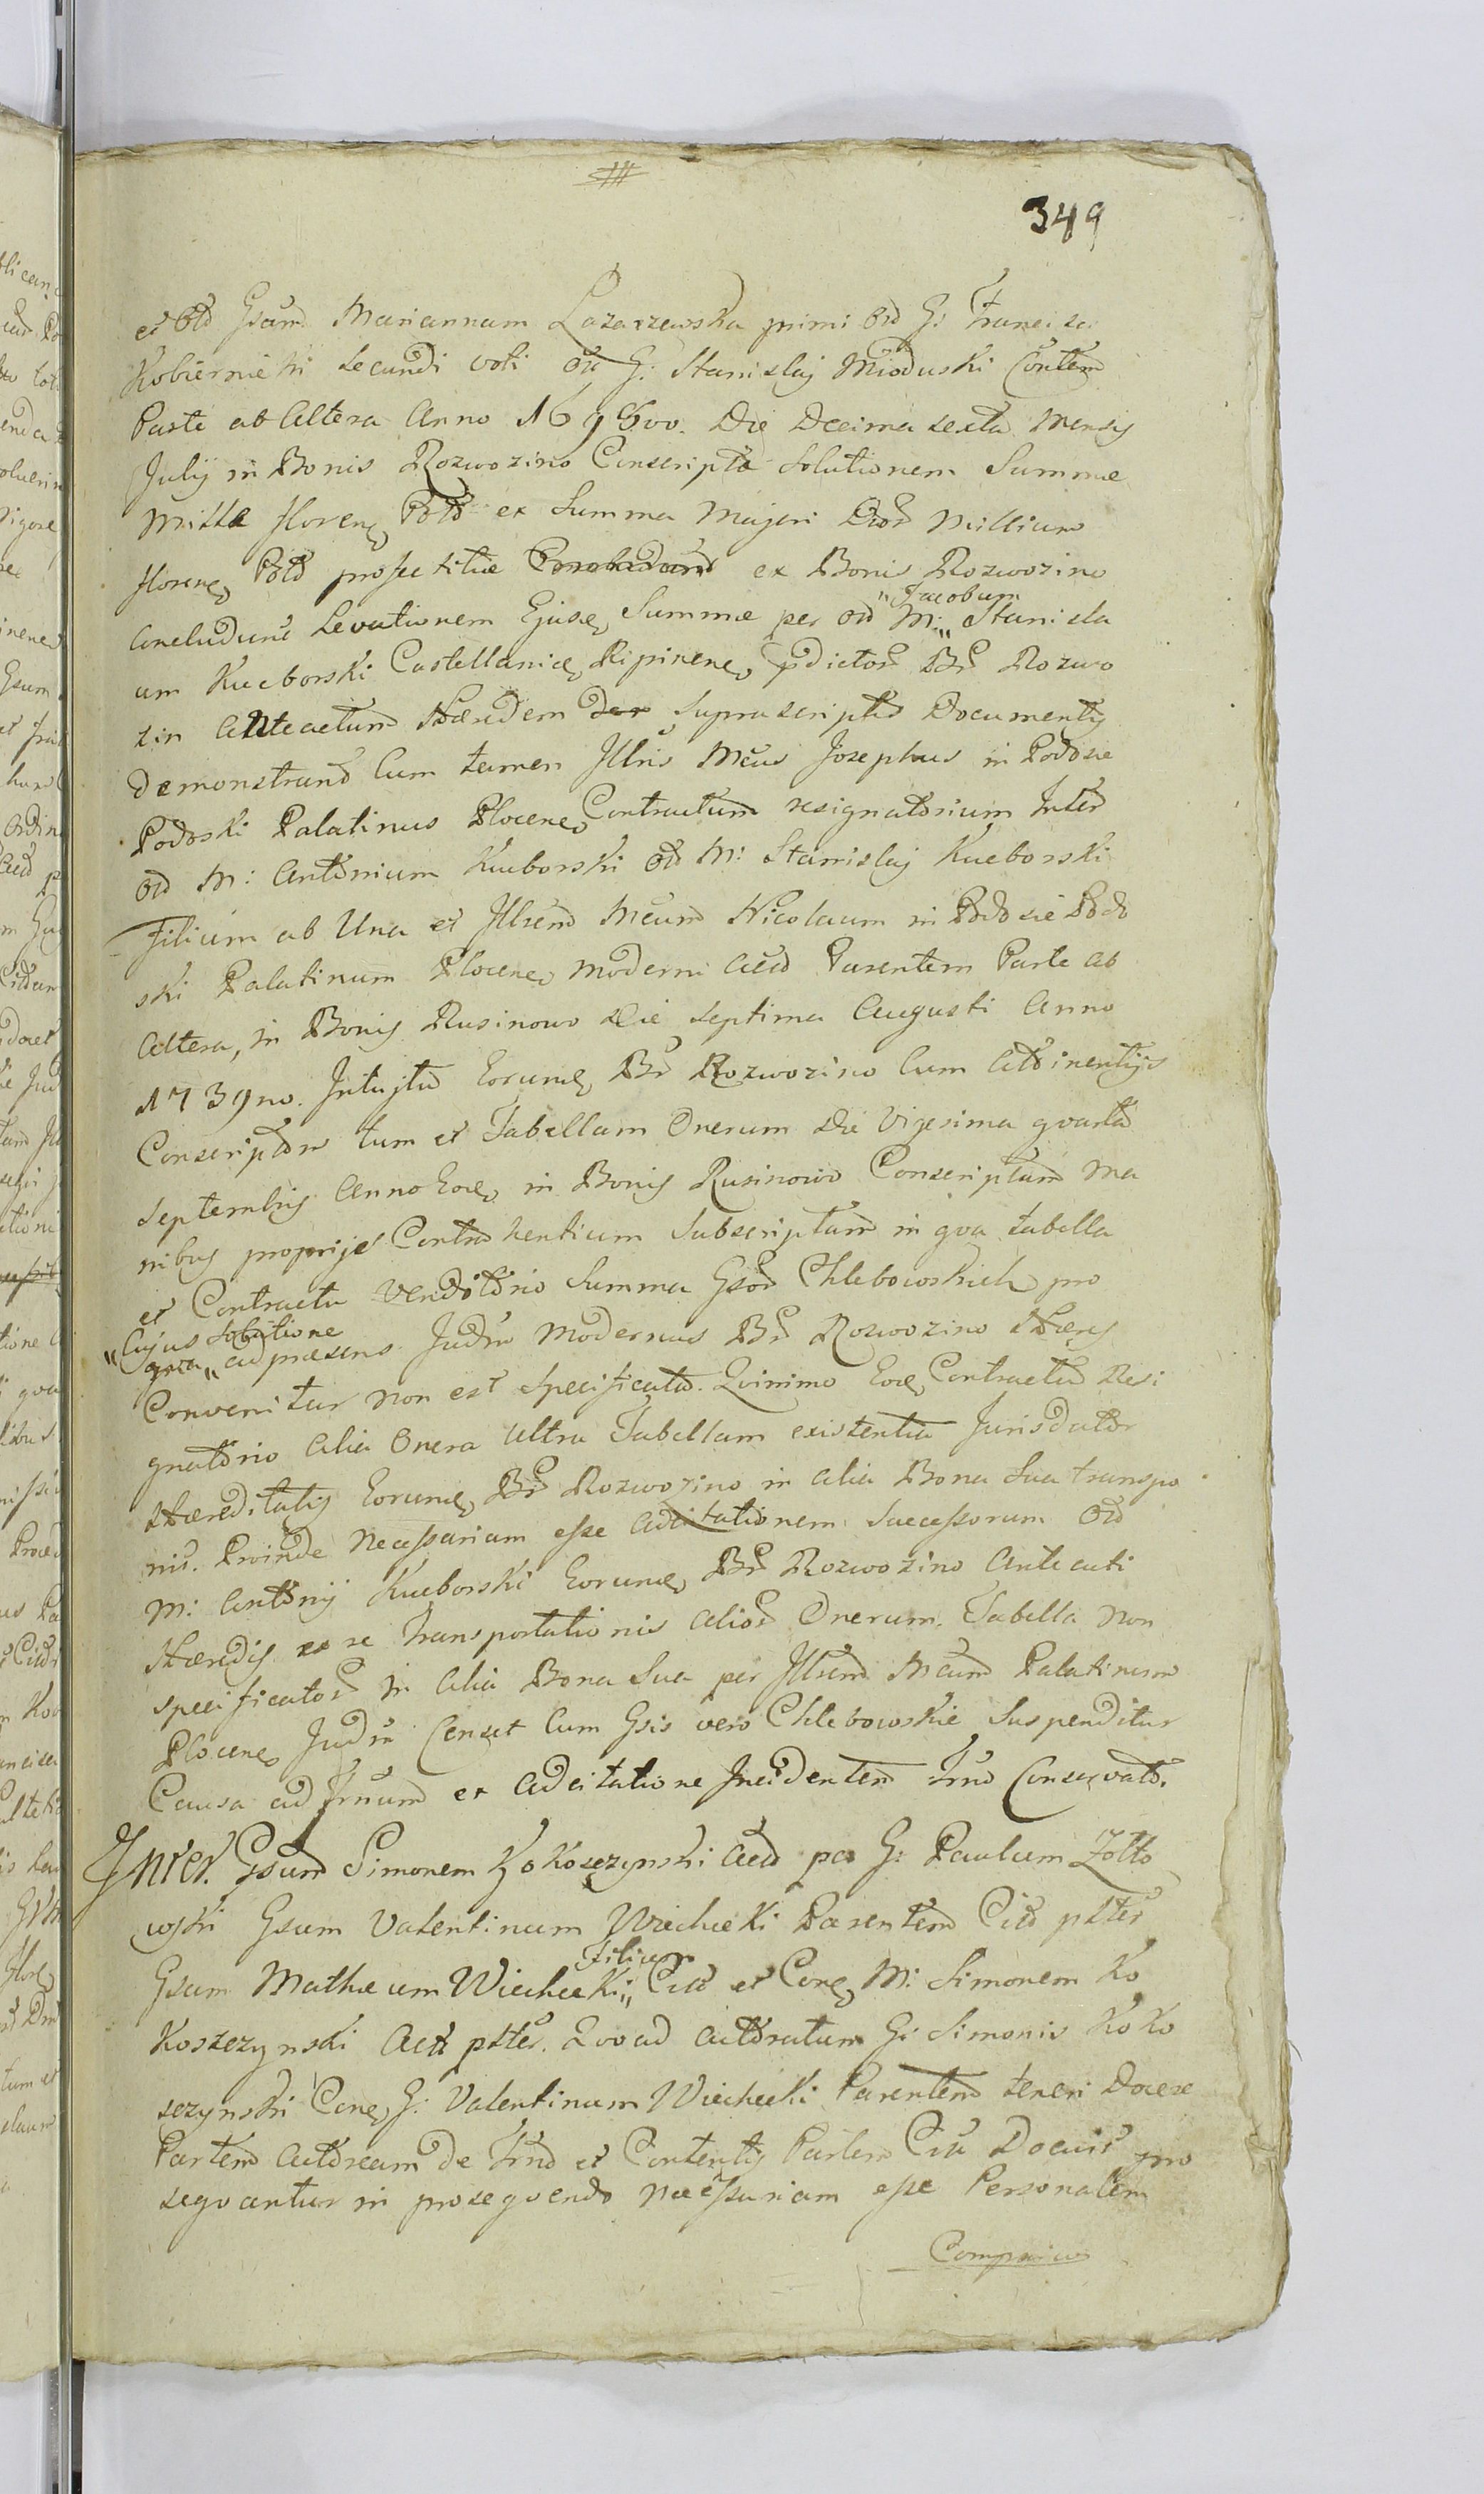 349
et old Gsam Mariannam Lazarzewska primi old G: Francisci
Kobiernicki secundi voti old G: Stanislaj Mioduski Contem
Parte ab altera Anno 1696to. Die Decima sexta Mensis
Julij in Bonis Rozwozino Conscripto Solutionem Summæ
Mille floren Pold ex Summa Majori Duor Millium
floren Pold profectitiæ ex Bonis Rozwozino
Concludunt Levationem Ejusd Summæ per old M: "Jacobum" Stanisla
um Kucborski Castellanic Ripinen, pdictor Br Rozwo
zin Anteactum Hæredem Suprascriptis Documentis
Demonstrand Cum tamen Jllris Mcus Josephus in Podosie
Podoski Palatinus Plocen Contractum resignatorium Inter
old M: Antonium Kucborski old M: Stanislaj Kucborski
Filium ab Una et Jllrem Mcum Nicolaum in Podosie Podo
ski Palatinum Plocen moderni Act Parentem Parte ab
altera, in Bonis Rusinowo Die septima Augusti Anno
1739no. Intuitu Eorund, Br Rozwozino Cum Attinentijs
Conscriptum tum et Tabellam Onerum Die Vigesima qvarta
Septembris Anno Eod, in Bonis Rusinowo Conscriptam Ma
nibus proprijs Contrahentium Subscriptam in qva tabella
et Contractu Venditorio Summa Gsor Chlebowskich pro
"Cujus Solutione
qva" ad præsens Judm Modernus Br Rozwozino Hæres
Convenitur non est Specificata. Qvinimo Eod, Contractu Resi
gnatorio Alia Onera Ultra Tabellam existentia Jurisdator
Hæreditatis Eorund, Br Rozwozino in alia Bona Sua transpo
nit. Proinde Necessariam esse Adcitationem Successorum old
M: Antonij Kucborski Eorund, Br Rozwozino Anteacti
Hæredis re Transportationis alior Onerum Tabella Non
specificator in Alia Bona Sua per Jllrem Mcum Palatinum
Plocen, Judm Censet Cum Gsis vero Chlebowskie Suspenditur
Causa ad Trnum ex Adcitatione Incidentem Trno Conservato.
Inter. Gsum Simonem Kokoszczynski Act per G: Paulum Zołto
wski Gsum Valentinum Wiechecki Parentem Cit ptter
Gsum Mathæum Wiechecki "Filium" Cit et Con, M: Simonem Ko
koszczynski Act ptter. Qvoad Actoratum G: Simonis Koko
szczynski Con, G: Valentinum Wiechecki Parentem teneri Docere
Partem Actoream de Trno et Contentis Partem Citt Docuit pro
seqvantur in proseqvendo Necessariam esse Personalem